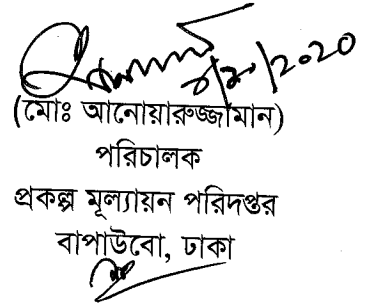 (মোঃ আনোয়ারুজ্জামান)
পরিচালক
প্রকল্প মূল্যায়ন পরিদপ্তর
বাপাউবো, ঢাকা